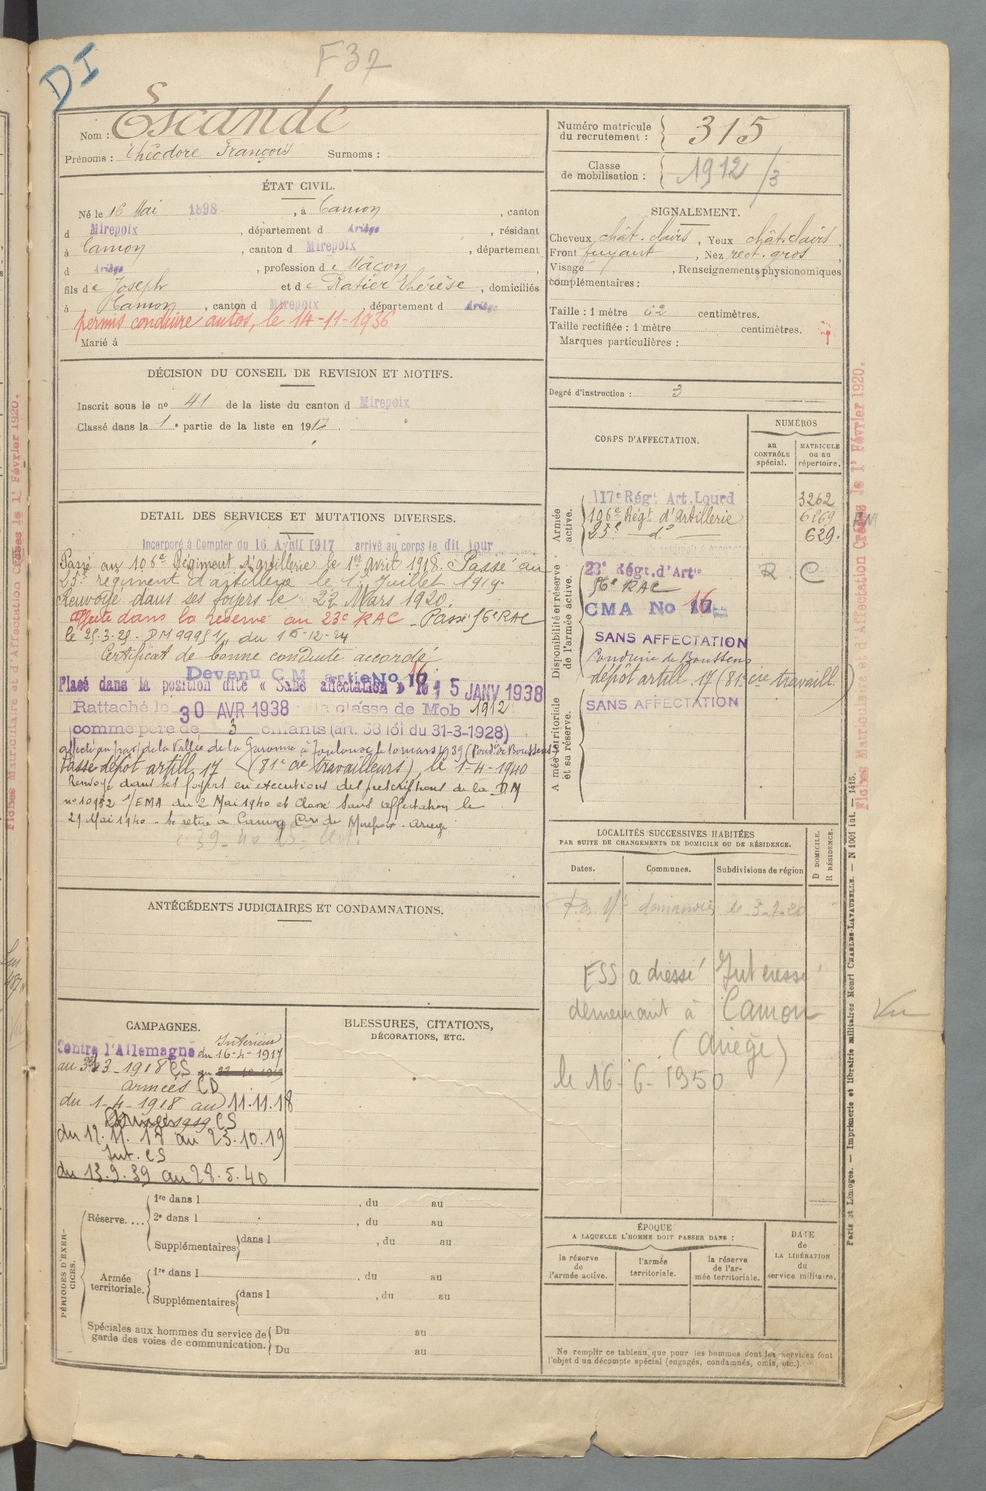 DI
F37
Nom : Escande
Prénoms : Théodore François Surnoms :
Numéro matricule du recrutement : 315
Classe de mobilisation : 1912/3
ÉTAT CIVIL.
Né le 16 Mai 1898, à Camon, canton
d Mirepoix, département d Ariège, résidant
à Camon, canton d Mirepoix, département
d Ariège, profession de Maçon,
fils de Joseph et de Ratier Thérèse, domiciliés
à Camon, canton d Mirepoix, département d Ariège
permis conduire autos, le 14-11-1936
Marié à
SIGNALEMENT.
Cheveux chât. clairs, Yeux chât. clairs,
Front fuyant, Nez rect. gros,
Visage , Renseignements physionomiques
complémentaires :
Taille : 1 mètre 62 centimètres.
Taille rectifiée : 1 mètre centimètres.
Marques particulières :
Degré d'instruction : 3
DÉCISION DU CONSEIL DE REVISION ET MOTIFS.
Inscrit sous le nº 41 de la liste du canton d Mirepoix
Classé dans la 1e partie de la liste en 1917
DETAIL DES SERVICES ET MUTATIONS DIVERSES.
Incorporé à Compter du 16 Avril 1917 arrivé au corps le dit jour
Passé au 106e Régiment d'artillerie le 1er avril 1918. Passé au
23e régiment d'artillerie le 1er Juillet 1919.
Renvoyé dans ses foyers le 22 Mars 1920.
Affecté dans la réserve au 23e RAC - Passé 56e RAC
le 25.3.29. DM 9995 1/1 du 15-12-24
Certificat de bonne conduite accordé
Devenu C.M. artie No 16
Placé dans la position dite « Sans affectation » le 15 JANV 1938
Rattaché le 30 AVR 1938 à la classe de Mob 1912
comme père de 3 enfants (art. 58 loi du 31-3-1928)
Passé dépôt artill. 17 (81e cie travailleurs), le 1-4-1940
Renvoyé dans ses foyers en executions des prescriptions de la DM
nº 10952 1/EMA du 2 Mai 1940 et classé sans affectation le
29 Mai 1940 - Se retire à Camon Con de Mirepoix - Ariège
CORPS D'AFFECTATION.
NUMÉROS
au CONTRÔLE spécial.
MATRICULE ou au répertoire.
Armée active.
117e Régt Art. Lourd 3262
106e Régt d'artillerie 6869
23e do 629.
Disponibilité et réserve de l'armée active.
23e Régt. d'Artie R. C
56e RAC
CMA No 16
SANS AFFECTATION
Poudrerie de Boussens
dépôt artill. 17 (81e cie travaill.)
Armée territoriale et sa réserve.
SANS AFFECTATION
LOCALITÉS SUCCESSIVES HABITÉES
PAR SUITE DE CHANGEMENTS DE DOMICILE OU DE RÉSIDENCE.
Dates. Communes. Subdivisions de région
D DOMICILE.
R RÉSIDENCE.
le 3-7-20
adressé Intéressé
demeurant à Camon
(Ariège)
le 16-6-1950
Vu
ANTÉCÉDENTS JUDICIAIRES ET CONDAMNATIONS.
CAMPAGNES.
Contre l'Allemagne
Intérieur
du 16-4-1917
au 31-3-1918 CS
armées CD
du 1-4-1918 au 11.11.18
CS
au 23.10.19
Int. CS
du 13.9.39 au 28.5.40
BLESSURES, CITATIONS,
DÉCORATIONS, ETC.
PÉRIODES D'EXERCICES.
Réserve....
1re dans l , du au
2e dans l , du au
Supplémentaires dans l , du au
Armée territoriale.
1re dans l , du au
Supplémentaires dans l , du au
Spéciales aux hommes du service de garde des voies de communication.
Du au
Du au
ÉPOQUE
A LAQUELLE L'HOMME DOIT PASSER DANS :
la réserve de l'armée active.
l'armée territoriale.
la réserve de l'armée territoriale.
DATE de LA LIBÉRATION du service militaire.
Ne remplir ce tableau que pour les hommes dont les services font
l'objet d'un décompte spécial (engagés, condamnés, omis, etc.).
Fiches Matricule et d'Affectation Créées le 1er Février 1920.
Paris et Limoges. — Imprimerie et librairie militaires Henri CHARLES-LAVAUZELLE. — N 1001 int. — 1415.